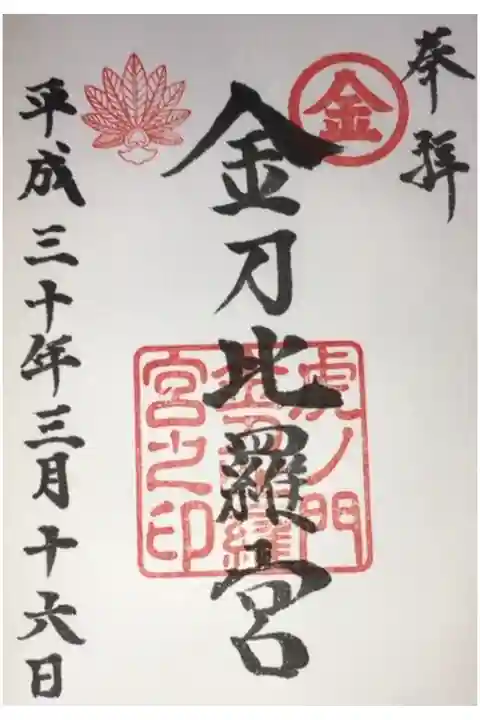 奉拝
金
金刀比羅宮
虎ノ門
金刀比羅
宮之印
平成三十年三月十六日